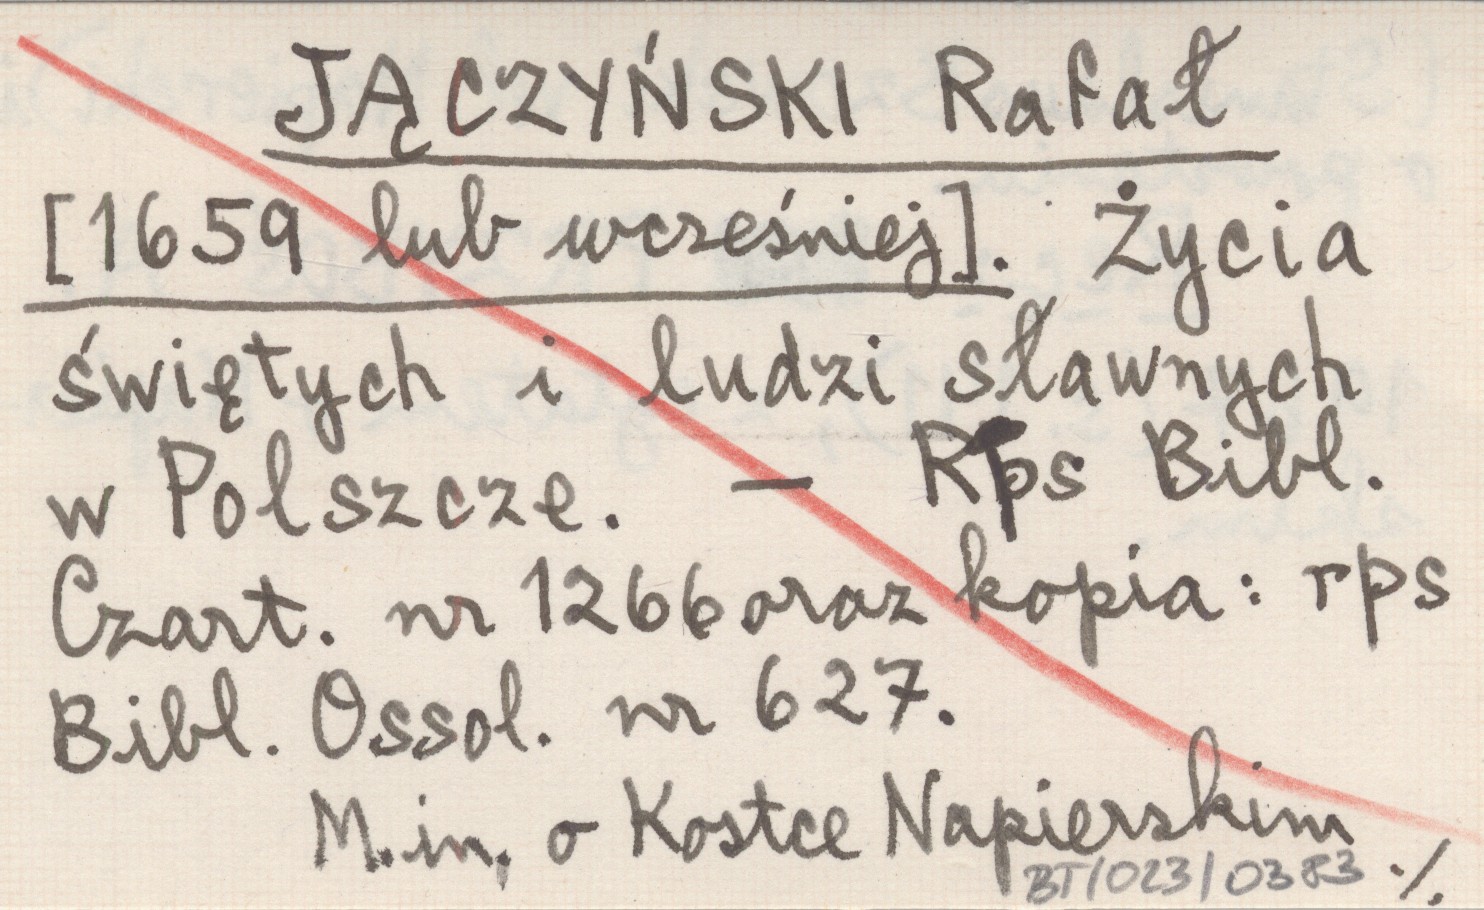 JĄCZYŃSKI Rafał
[1659 lub wcześniej]. Życia
świętych i ludzi sławnych
w Polszcze. — Rps Bibl.
Czart. nr 1266 oraz kopia: rps
Bibl. Ossol. nr 627.
M.in. o Kostce Napierskim
BT/023/0383 ./.